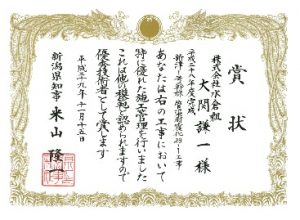 賞状
株式会社水倉組
大関謙一様
平成二十八年度完成
あなたは右の工事において
特に優れた施工管理を行いました
これは他の模範と認められますので
優秀技術者として賞します
平成二十九年十一月十五日
新潟県知事 米山隆一